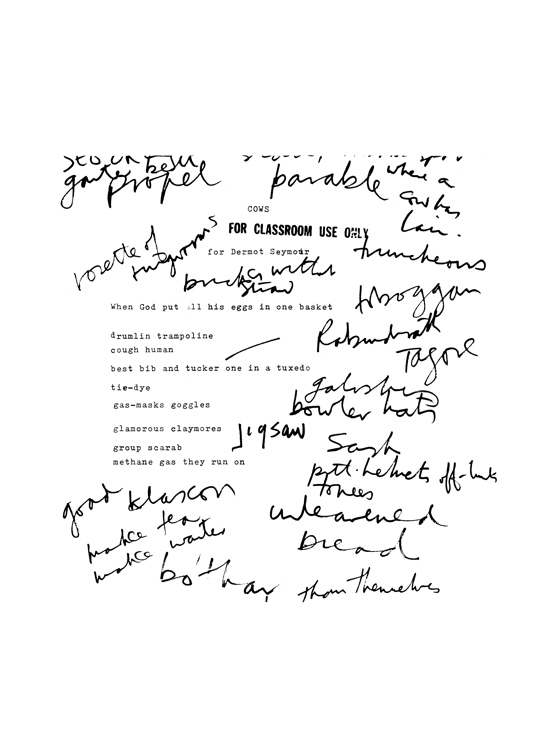 propel
parable where a
cow has
lain.
COWS
FOR CLASSROOM USE ONLY
for Dermot Seymour
rosette of
ringworms
truncheons
bricks without
straw
When God put all his eggs in one basket
toboggan
drumlin trampoline
Rabindranath
cough human
Tagore
best bib and tucker one in a tuxedo
tie-dye
galoshes
gas-masks goggles
bowler hats
glamorous claymores
jigsaw
group scarab
Sash
methane gas they run on
pith-helmets off-limits
good klaxon
unleavened
make tea
bread
make water
bo'thar
than themselves